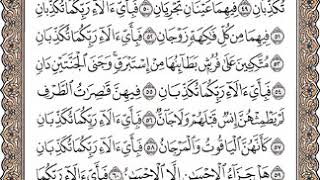 تُكَذِّبَانِ ٤٩ فِيهِمَا عَيْنَانِ تَجْرِيَانِ ٥٠ فَبِأَيِّ ءَالَآءِ رَبِّكُمَا تُكَذِّبَانِ
٥١ فِيهِمَا مِن كُلِّ فَٰكِهَةٍ زَوْجَانِ ٥٢ فَبِأَيِّ ءَالَآءِ رَبِّكُمَا تُكَذِّبَانِ
٥٣ مُتَّكِـِٔينَ عَلَىٰ فُرُشٍۭ بَطَآئِنُهَا مِنْ إِسْتَبْرَقٍ ۚ وَجَنَى ٱلْجَنَّتَيْنِ دَانٍ
٥٤ فَبِأَيِّ ءَالَآءِ رَبِّكُمَا تُكَذِّبَانِ ٥٥ فِيهِنَّ قَٰصِرَٰتُ ٱلطَّرْفِ
لَمْ يَطْمِثْهُنَّ إِنسٌ قَبْلَهُمْ وَلَا جَآنٌّ ٥٦ فَبِأَيِّ ءَالَآءِ رَبِّكُمَا تُكَذِّبَانِ
٥٧ كَأَنَّهُنَّ ٱلْيَاقُوتُ وَٱلْمَرْجَانُ ٥٨ فَبِأَيِّ ءَالَآءِ رَبِّكُمَا تُكَذِّبَانِ
٥٩ هَلْ جَزَآءُ ٱلْإِحْسَٰنِ إِلَّا ٱلْإِحْسَٰنُ ٦٠ فَبِأَيِّ ءَالَآءِ رَبِّكُمَا